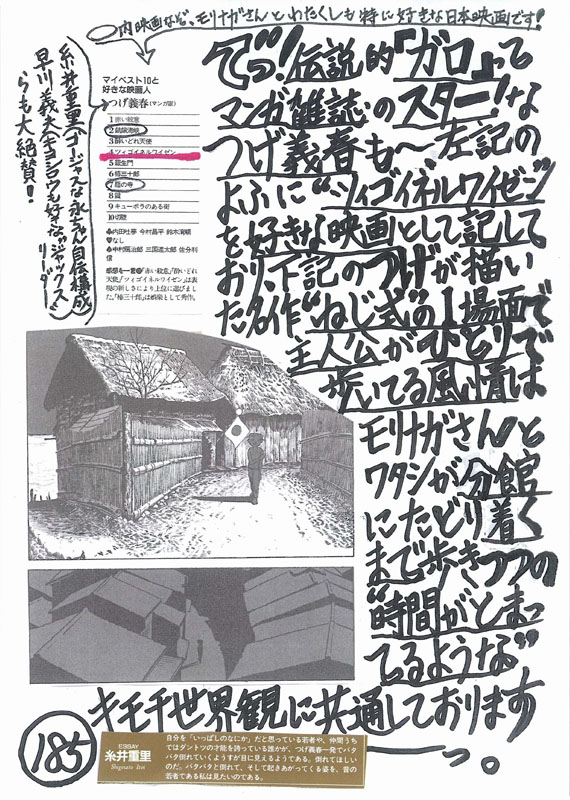 ○内映画なぞ、モリナガさんとわたくしも特に好きな日本映画です!
でっ!伝説的『ガロ』って
マンガ雑誌のスター!な
つげ義春も〜左記の
よふに"ツィゴイネルワイゼン"
を好きな映画として記して
おり、下記のつげが描い
た名作"ねじ式"の1場面で
主人公がひとりで
歩いてる風情は
モリナガさんと
ワタシが分館
にたどり着く
まで歩きつつの
"時間がとまっ
てるような"
キモチ世界観に共通しております
っ。
マイベスト10と
好きな映画人
つげ義春(マンガ家)
1 赤い殺意
2 飢餓海峡
3 酔いどれ天使
4 ツィゴイネルワイゼン
5 羅生門
6 椿三十郎
7 雁の寺
8
9 キューポラのある街
10 切腹
内田吐夢 今村昌平 鈴木清順
なし
中村鴈治郎 三国連太郎 佐分利
信
感想を一言 「赤い殺意」「酔いどれ
天使」「ツィゴイネルワイゼン」は表
現の新しさにより上位に選びまし
た。「椿三十郎」は娯楽として秀作。
糸井重里(ゴージャスな永ちゃん自伝構成)
早川義夫(キヨシロウも好きな"ジャックス"リーダー)
らも大絶賛!
185
ESSAY
糸井重里
Shigesato Itoi
自分を「いっぱしのなにか」だと思っている若者や、仲間うち
ではダントツの才能を誇っている誰かが、つげ義春一発でバタ
バタ倒れていくようすが目に見えるようである。倒れてほしい
のだ。バタバタと倒れて、そして起きあがってくる姿を、昔の
若者である私は見たいのである。